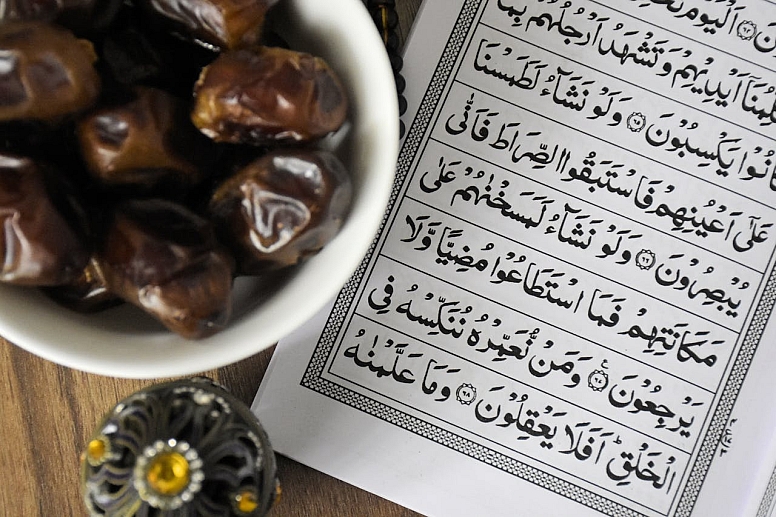 ن ﴿٦٤﴾ اَلْيَوْمَ نَخْتِمُ
تُكَلِّمُنَا اَيْدِيْهِمْ وَتَشْهَدُ اَرْجُلُهُمْ بِمَا
كَانُوْا يَكْسِبُوْنَ ﴿٦٥﴾ وَلَوْ نَشَآءُ لَطَمَسْنَا
عَلٰٓى اَعْيُنِهِمْ فَاسْتَبَقُوا الصِّرَاطَ فَاَنّٰى
يُبْصِرُوْنَ ﴿٦٦﴾ وَلَوْ نَشَآءُ لَمَسَخْنٰهُمْ عَلٰى
مَكَانَتِهِمْ فَمَا اسْتَطَاعُوْا مُضِيًّا وَّلَا
يَرْجِعُوْنَ ﴿٦٧﴾ وَمَنْ نُّعَمِّرْهُ نُنَكِّسْهُ فِى
الْخَلْقِؕ اَفَلَا يَعْقِلُوْنَ ﴿٦٨﴾ وَمَا عَلَّمْنٰهُ